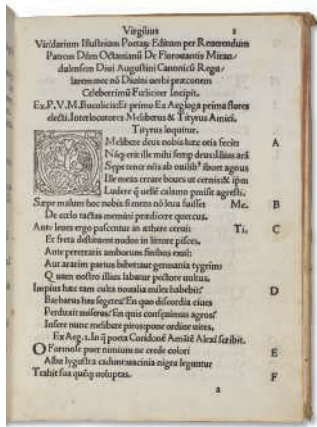 Virgilius 2
Viridarium Illustrium Poetarum: Editum per Reuerendum
Patrem Dñm Octauianũ De Fiorauantis Miran/
dulensem Diui Augustini Canonicũ Regu/
larem nec nõ Diuini uerbi præconem
Celeberrimũ Fœliciter Incipit.
Ex.P.V.M.Bucolicis Et primo Ex Aegloga prima flores
electi. Interlocutores Melibœus & Tityrus Amici.
Tityrus loquitur.
Melibœe deus nobis hæc otia fecit: A
Nãq erit ille mihi semp deus: illius arã
Sæpe tener nr̃is ab ouilib⁹ ibuet agnus
Ille meas errare boues ut cernis: & ipm
Ludere q̃ uellẽ calamo pmisit agresti.
Sæpe malum hoc nobis si mens nõ leua fuisset Me. B
De cœlo tactas memini prædicere quercus.
Ante leues ergo pascentur in æthere cerui: Ti. C
Et freta destituent nudos in littore pisces.
Ante pererratis amborum finibus exul:
Aut ararim partus bibet: aut germania tygrim:
Quam nostro illius labatur pectore uultus.
Impius hæc tam culta noualia miles habebit: D
Barbarus has segetes: En quo discordia ciues
Perduxit miseros: En quis consequimus agros:
Insere nunc melibœe piros: pone ordine uites.
Ex Aeg.2. In q̃ poeta Coridonẽ Amãtẽ Alexĩ scribit.
O Formose puer nimium ne crede colori E
Alba lygustra cadunt: uaccinia nigra leguntur
Trahit sua quẽq uoluptas. F
a